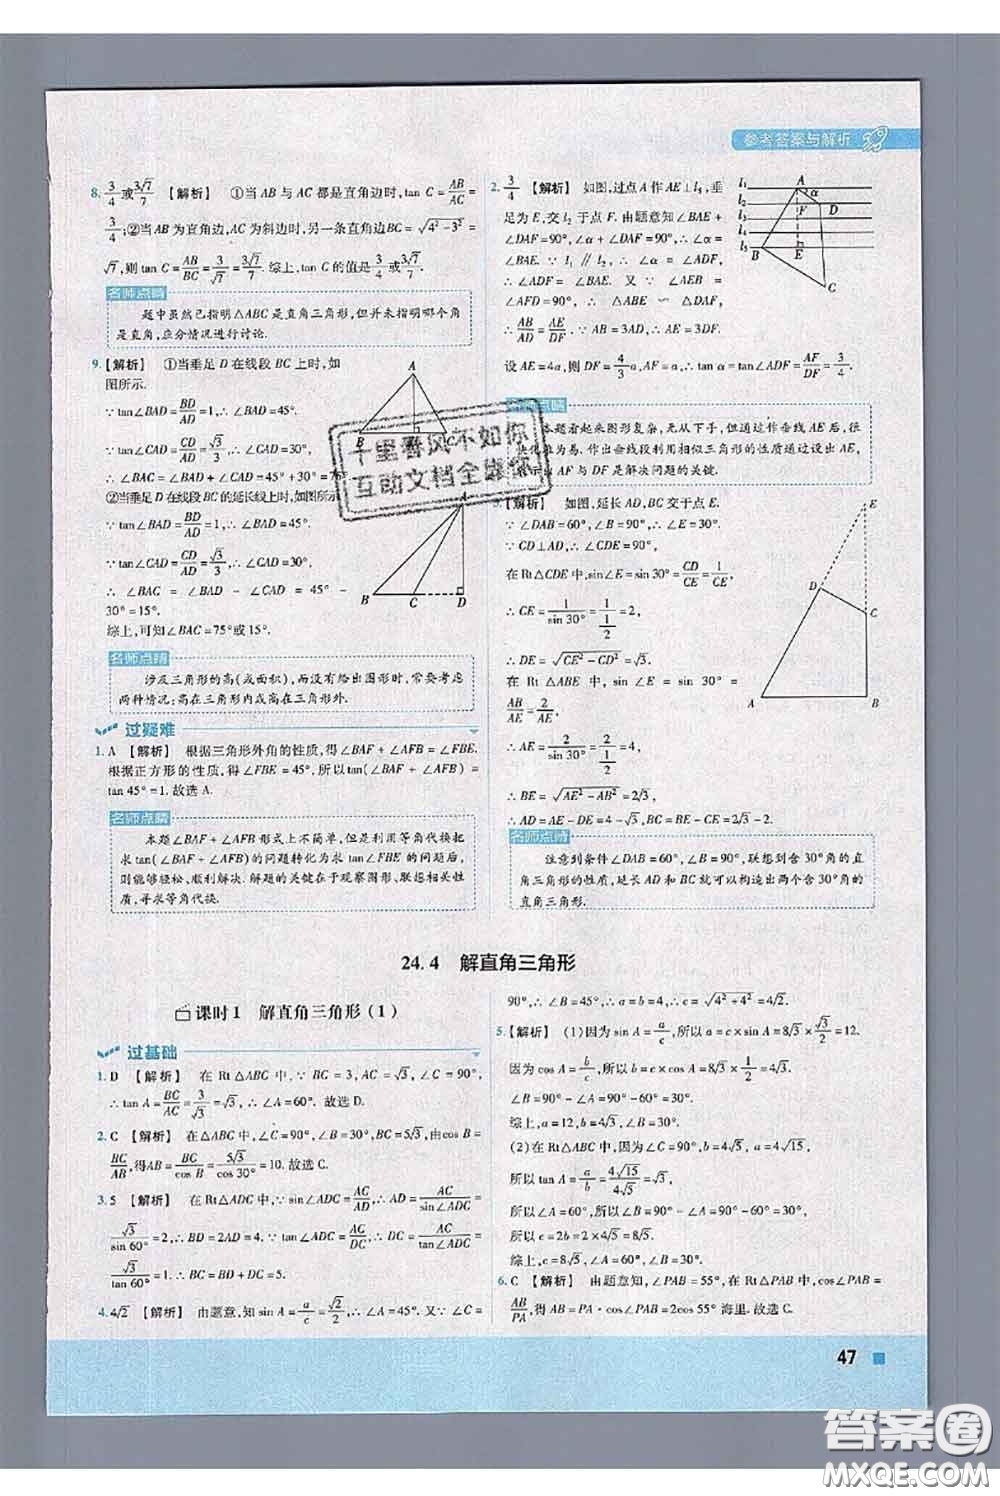 参考答案与解析
8. 3/4或3√7/7 【解析】 ①当AB与AC都是直角边时,tan C=AB/AC=
3/4;②当AB为直角边,AC为斜边时,另一条直角边BC=√(4²-3²)=
√7,则tan C=AB/BC=3/√7=3√7/7. 综上,tan C的值是3/4或3√7/7.
名师点睛
题中虽然已指明△ABC是直角三角形,但并未指明哪个角
是直角,应分情况进行讨论.
9.【解析】 ①当垂足D在线段BC上时,如
图所示.
∵tan∠BAD=BD/AD=1,∴∠BAD=45°.
∵tan∠CAD=CD/AD=√3/3,∴∠CAD=30°,
∴∠BAC=∠BAD+∠CAD=45°+30°=75°.
②当垂足D在线段BC的延长线上时,如图所示.
∵tan∠BAD=BD/AD=1,∴∠BAD=45°.
∵tan∠CAD=CD/AD=√3/3,∴∠CAD=30°,
∴∠BAC=∠BAD-∠CAD=45°-
30°=15°.
综上,可知∠BAC=75°或15°.
名师点睛
涉及三角形的高(或面积),而没有给出图形时,常要考虑
两种情况:高在三角形内或高在三角形外.
过疑难
1. A 【解析】 根据三角形外角的性质,得∠BAF+∠AFB=∠FBE.
根据正方形的性质,得∠FBE=45°,所以tan(∠BAF+∠AFB)=
tan 45°=1. 故选A.
名师点睛
本题∠BAF+∠AFB形式上不简单,但是利用等角代换把
求tan(∠BAF+∠AFB)的问题转化为求tan∠FBE的问题后,
则能够轻松、顺利解决. 解题的关键在于观察图形、联想相关性
质,寻求等角代换.
2. 3/4 【解析】 如图,过点A作AE⊥l₅,垂
足为E,交l₂于点F. 由题意知∠BAE+
∠DAF=90°,∠α+∠DAF=90°,∴∠α=
∠BAE. ∵l₁∥l₂,∴∠α=∠ADF,
∴∠ADF=∠BAE. 又∵∠AEB=
∠AFD=90°,∴△ABE∽△DAF,
∴AB/AD=AE/DF. ∵AB=3AD,∴AE=3DF.
设AE=4a,则DF=4/3a,AF=a,∴tan α=tan∠ADF=AF/DF=3/4.
名师点睛
本题看起来图形复杂,无从下手,但通过作垂线AE后,往
作出垂线段利用相似三角形的性质通过设出
AF与DF是解决问题的关键.
【解析】 如图,延长AD,BC交于点E.
∵∠DAB=60°,∠B=90°,∴∠E=30°.
∵CD⊥AD,∴∠CDE=90°,
在Rt△CDE中,sin∠E=sin 30°=CD/CE=1/CE,
∴CE=1/sin 30°=1/(1/2)=2,
∴DE=√(CE²-CD²)=√3.
在Rt△ABE中,sin∠E=sin 30°=
AB/AE=2/AE,
∴AE=2/sin 30°=2/(1/2)=4,
∴BE=√(AE²-AB²)=2√3,
∴AD=AE-DE=4-√3,BC=BE-CE=2√3-2.
名师点睛
注意到条件∠DAB=60°,∠B=90°,联想到含30°角的直
角三角形的性质,延长AD和BC就可以构造出两个含30°角的
直角三角形.
24.4 解直角三角形
课时1 解直角三角形(1)
过基础
1. D 【解析】 在Rt△ABC中,∵BC=3,AC=√3,∠C=90°,
∴tan A=BC/AC=3/√3=√3,∴∠A=60°. 故选D.
2. C 【解析】 在△ABC中,∠C=90°,∠B=30°,BC=5√3,由cos B=
BC/AB,得AB=BC/cos B=5√3/cos 30°=10. 故选C.
3. 5 【解析】 在Rt△ADC中,∵sin∠ADC=AC/AD,∴AD=AC/sin∠ADC=
√3/sin 60°=2,∴BD=2AD=4. ∵tan∠ADC=AC/DC,∴DC=AC/tan∠ADC=
√3/tan 60°=1. ∴BC=BD+DC=5.
4. 4√2 【解析】 由题意,知sin A=a/c=√2/2,∴∠A=45°. 又∵∠C=
90°,∴∠B=45°,∴a=b=4,∴c=√(4²+4²)=4√2.
5.【解析】 (1)因为sin A=a/c,所以a=c×sin A=8√3×√3/2=12.
因为cos A=b/c,所以b=c×cos A=8√3×1/2=4√3.
∠B=90°-∠A=90°-60°=30°.
综上,a=12,b=4√3,∠B=30°.
(2)在Rt△ABC中,因为∠C=90°,b=4√5,a=4√15,
所以tan A=a/b=4√15/4√5=√3,
所以∠A=60°,所以∠B=90°-∠A=90°-60°=30°,
所以c=2b=2×4√5=8√5.
综上,c=8√5,∠A=60°,∠B=30°.
6. C 【解析】 由题意知,∠PAB=55°,在Rt△PAB中,cos∠PAB=
AB/PA,得AB=PA·cos∠PAB=2cos 55°海里. 故选C.
47
千里春风不如你
互助文档全靠你
答案圈
MXQE.COM